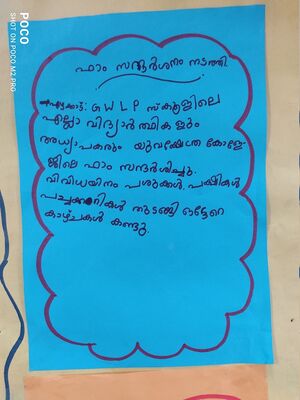 POCO
SHOT ON POCO M2 PRO
ഫാം സന്ദർശനം നടത്തി
GWLP സ്കൂളിലെ
എല്ലാ വിദ്യാർത്ഥികളും
അധ്യാപകരും യുവക്ഷേത്ര കോളേ-
ജിലെ ഫാം സന്ദർശിച്ചു.
വിവിധയിനം പശുക്കൾ, പക്ഷികൾ
പച്ചക്കറികൾ തുടങ്ങി ഒട്ടേറെ
കാഴ്ചകൾ കണ്ടു.